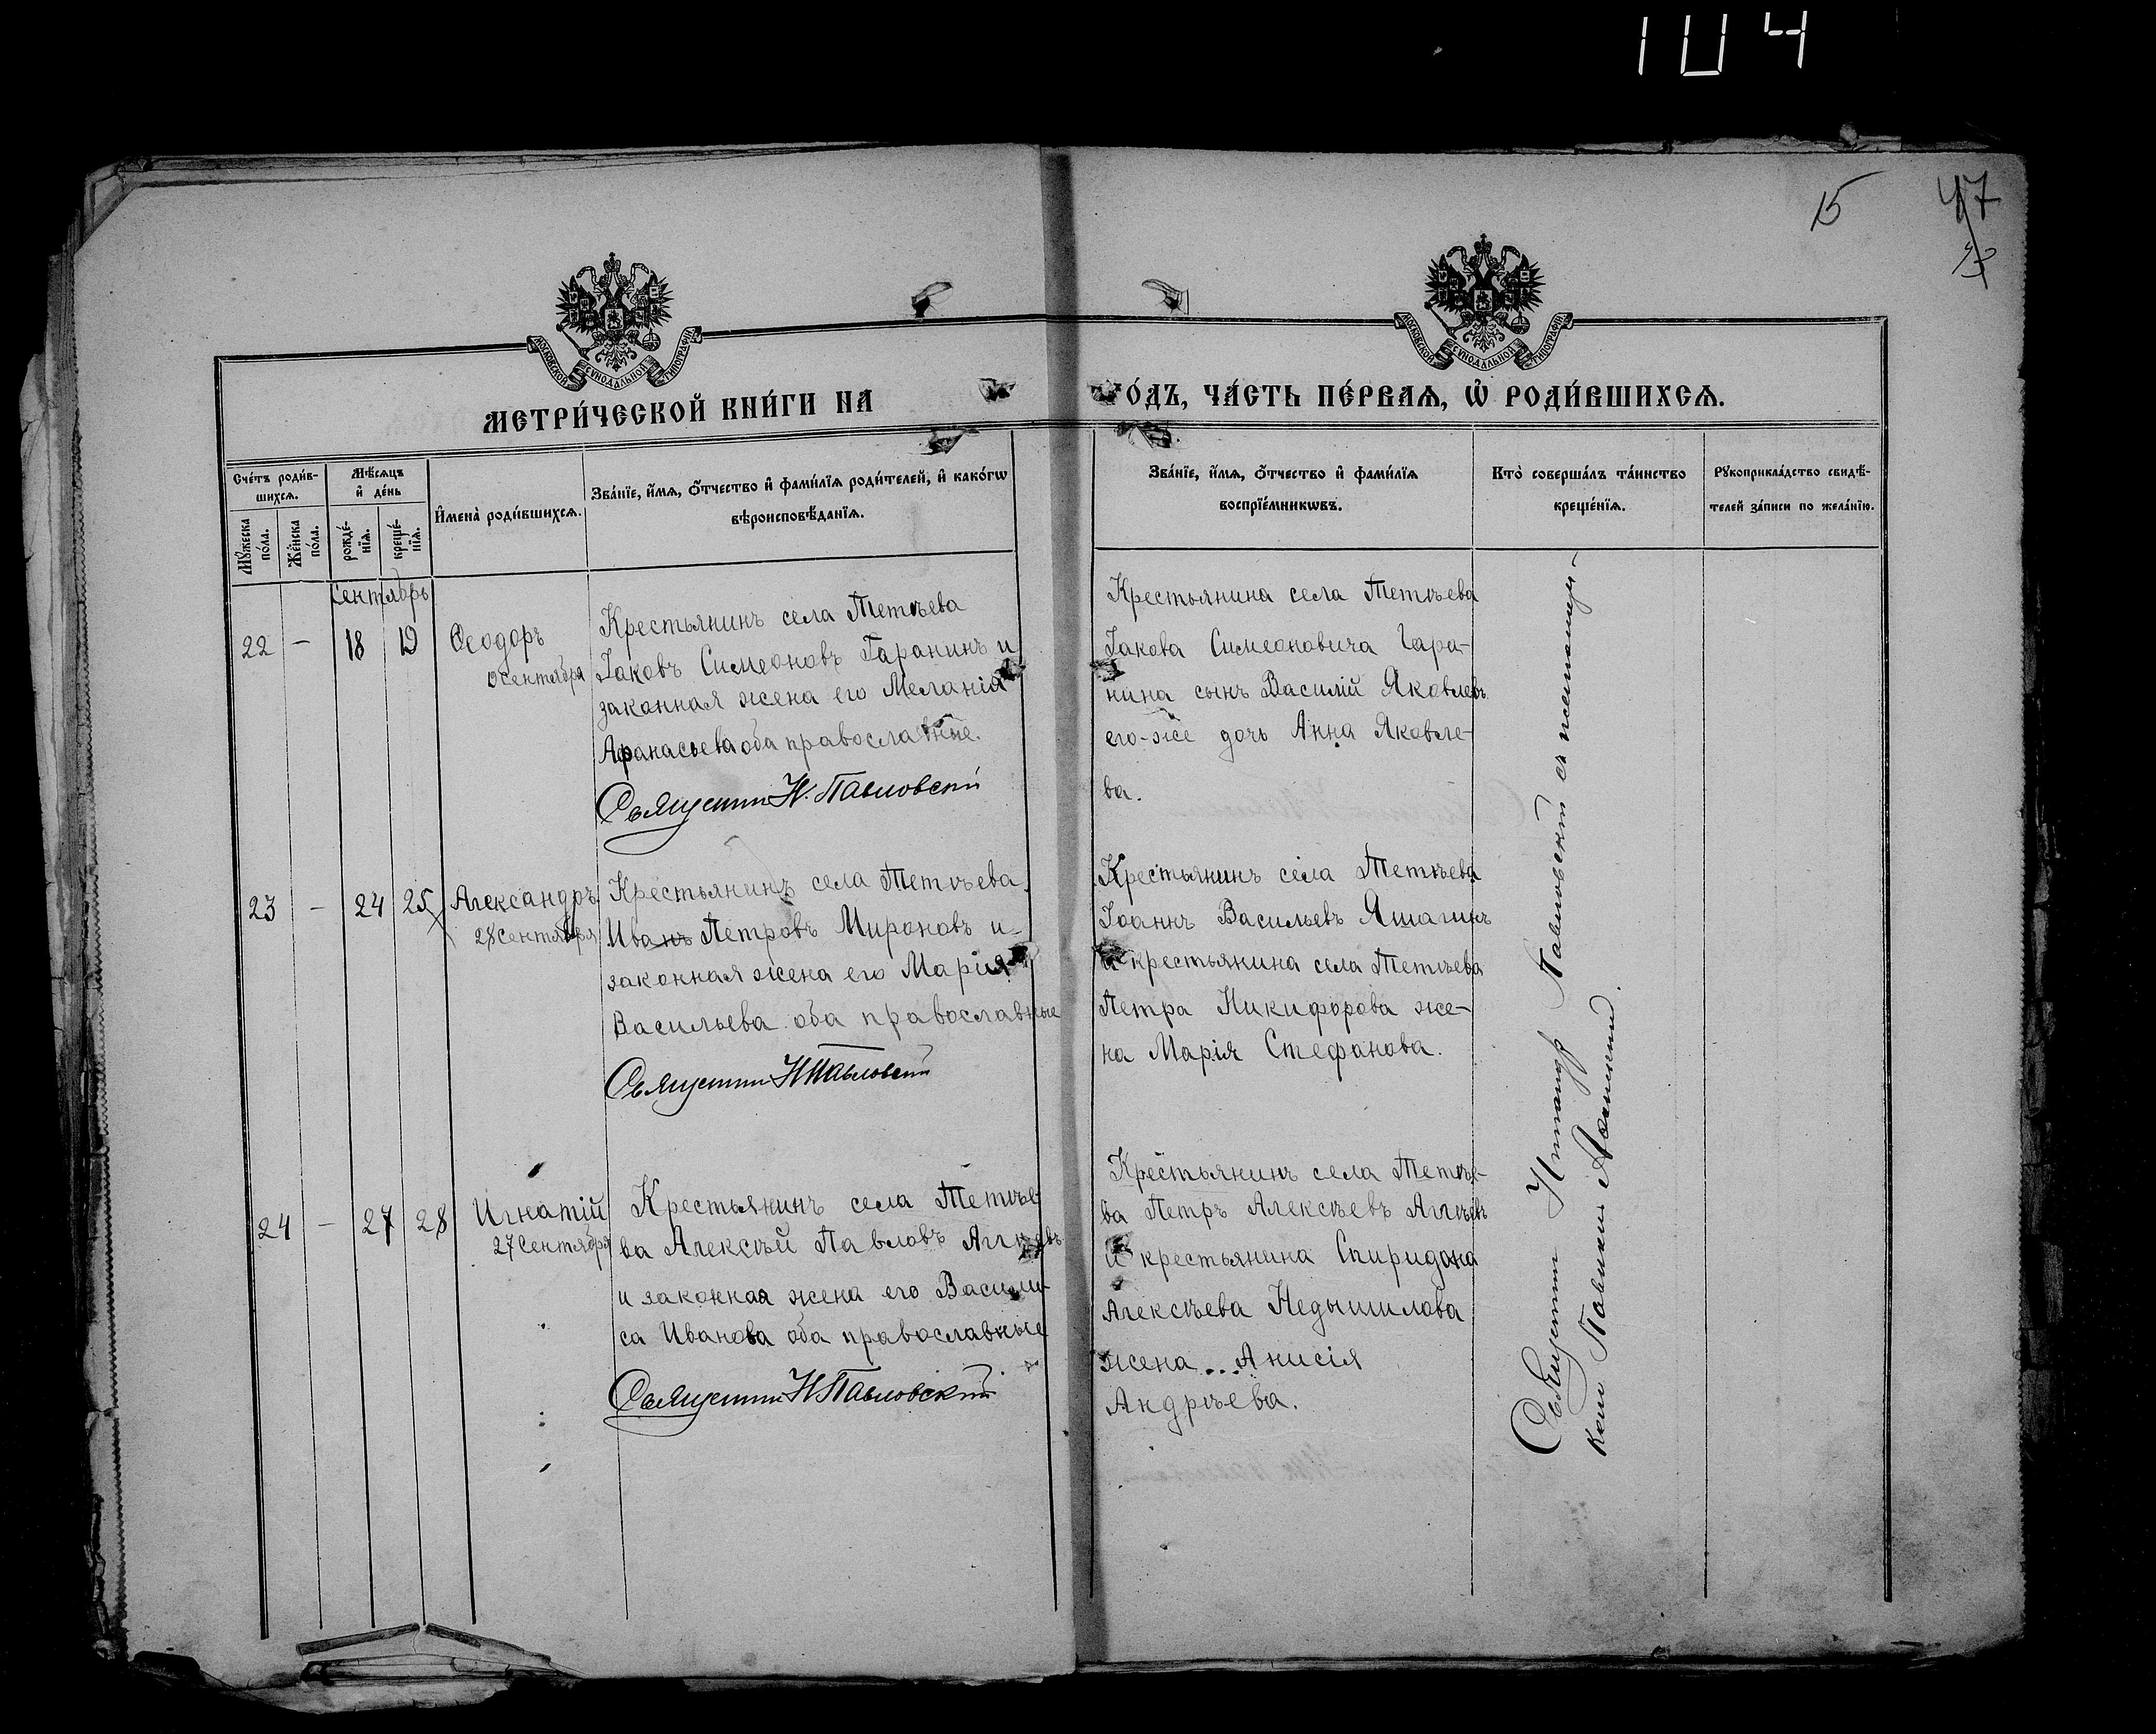 104
15
47
МОСКОВСКОЙ СѴНОДАЛЬНОЙ ТИПОГРАФІИ
МОСКОВСКОЙ СѴНОДАЛЬНОЙ ТИПОГРАФІИ
МЕТРИ́ЧЕСКОЙ КНИ́ГИ НА
О́ДЪ, ЧА́СТЬ ПЕ́РВАЯ, Ѡ РОДИ́ВШИХСЯ.
Сче́тъ роди́в-
шихся.
Мѣ́сяцъ
и҆ де́нь
Мꙋ́жеска
по́ла.
Же́нска
по́ла.
рожде́-
нїя.
креще́-
нїя.
И҆мена̀ роди́вшихся.
Зва́нїе, и҆́мя, ѻ҆́тчество и҆ фамѝлїя роди́телей, и҆ како́гѡ
вѣроисповѣ́данїя.
Зва́нїе, и҆́мя, ѻ҆́тчество и҆ фами́лїя
воспрїе́мникѡвъ.
Кто̀ соверша́лъ та́инство
креще́нїя.
Рꙋкоприкла́дство свидѣ́-
телей за́писи по жела́нїю.
Сентябрь
22 – 18 19 Ѳеодоръ
Сентября
Крестьянинъ села Теткѣева
Іаковъ Симеоновъ Гаранинъ и
законная жена его Меланія
Афанасьева оба православные.
Священникъ Н. Павловскій
Крестьянина села Теткѣева
Іакова Симеоновича Гара-
нина сынъ Василій Яковлевъ
его-же дочь Анна Яковле-
ва.
23 – 24 25 Александръ
28 Сентября
Крестьянинъ села Теткѣева
Иванъ Петровъ Мироновъ и
законная жена его Марія
Васильева оба православные
Священникъ Н Павловскій
Крестьянинъ села Теткѣева
Іоаннъ Васильевъ Яшагинъ
и крестьянина села Теткѣева
Петра Никифорова же-
на Марія Стефанова.
24 – 27 28 Игнатій
27 Сентября
Крестьянинъ села Теткѣе-
ва Алексѣй Павловъ Аггѣевъ
и законная жена его Васили-
са Иванова оба православные
Священникъ Н Павловскій
Крестьянинъ села Теткѣе-
ва Петръ Алексѣевъ Аггѣевъ
и крестьянина Спиридона
Алексѣева Недышилова
жена... Анисія
Андрѣева.
Священникъ Никандр Павловскій съ псаломщи-
комъ